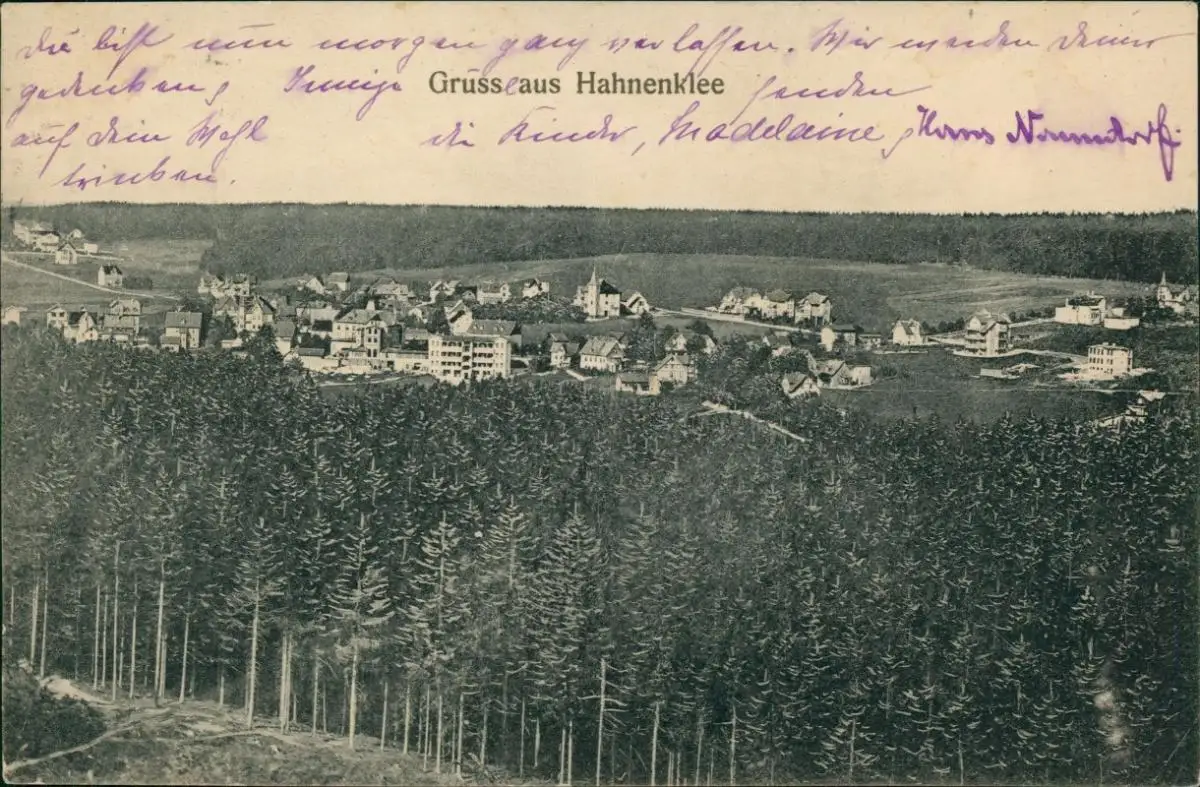 du bist nun morgen ganz verlassen. Wir werden Deiner
gedenken, Innige Gruss aus Hahnenklee senden
auf Dein Wohl die Kinder, Madelaine,
trinken.